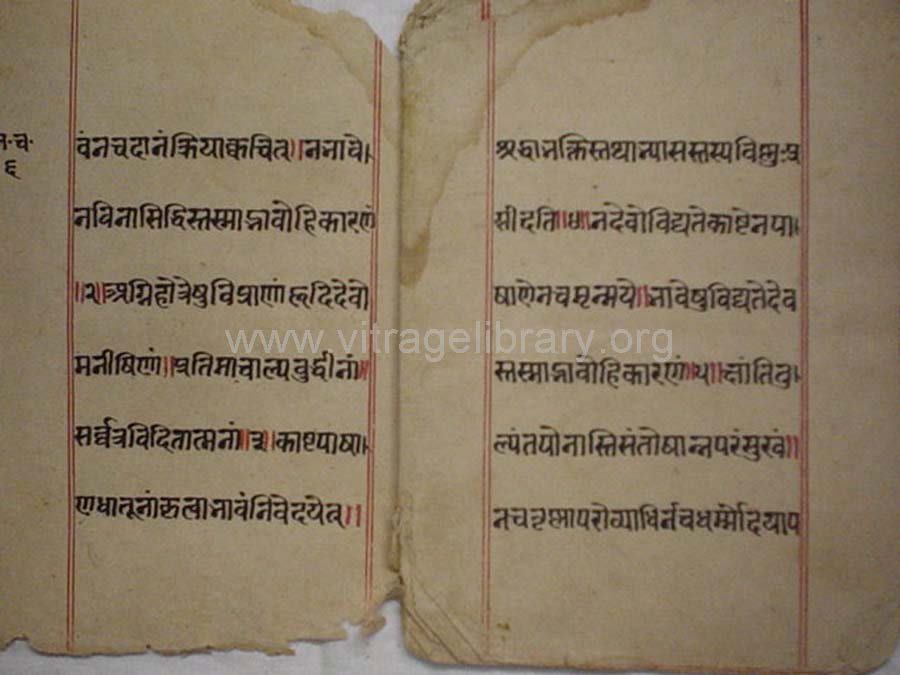 न.च.
६
वंनचदानंक्रियाक्वचित्॥ननावे।
नविनासिद्धिस्तस्माद्भावोहिकारणं
॥२॥अग्निहोत्रेषुविप्राणंहृदिदेवो
मनीषिणं॥प्रतिमाचाल्पबुद्धीनां॥
सर्व्वत्रविदितात्मनां॥३॥काष्टपाषा।
णधातूनांकृत्वाभावंनिवेदयेत्॥
श्रद्धानक्तिस्तथान्यासस्तस्यविष्णुःप्र
सीदति॥४॥नदेवोविद्यतेकाष्टेनपा।
षाणेनचमृन्मये॥भावेषुविद्यतेदेव
स्तस्माद्भावोहिकारणं॥५॥क्षांतितु।
ल्यंतपोनास्तिसंतोषान्नपरंसुखं॥
नचतृष्णापरोव्याधिर्नचधर्म्मोदियाप
www.vitragelibrary.org